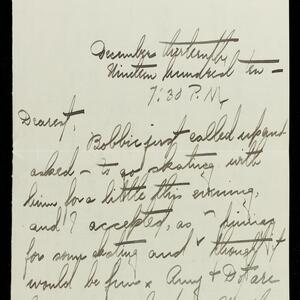 December thirteenth
Nineteen hundred ten —
7:30 P.M.
Dearest,
Bobbie just called up and
asked — to go skating with
him for a little this evening,
and I accepted, as —
for some skating & thought it
would be fun & Amy & Dot are